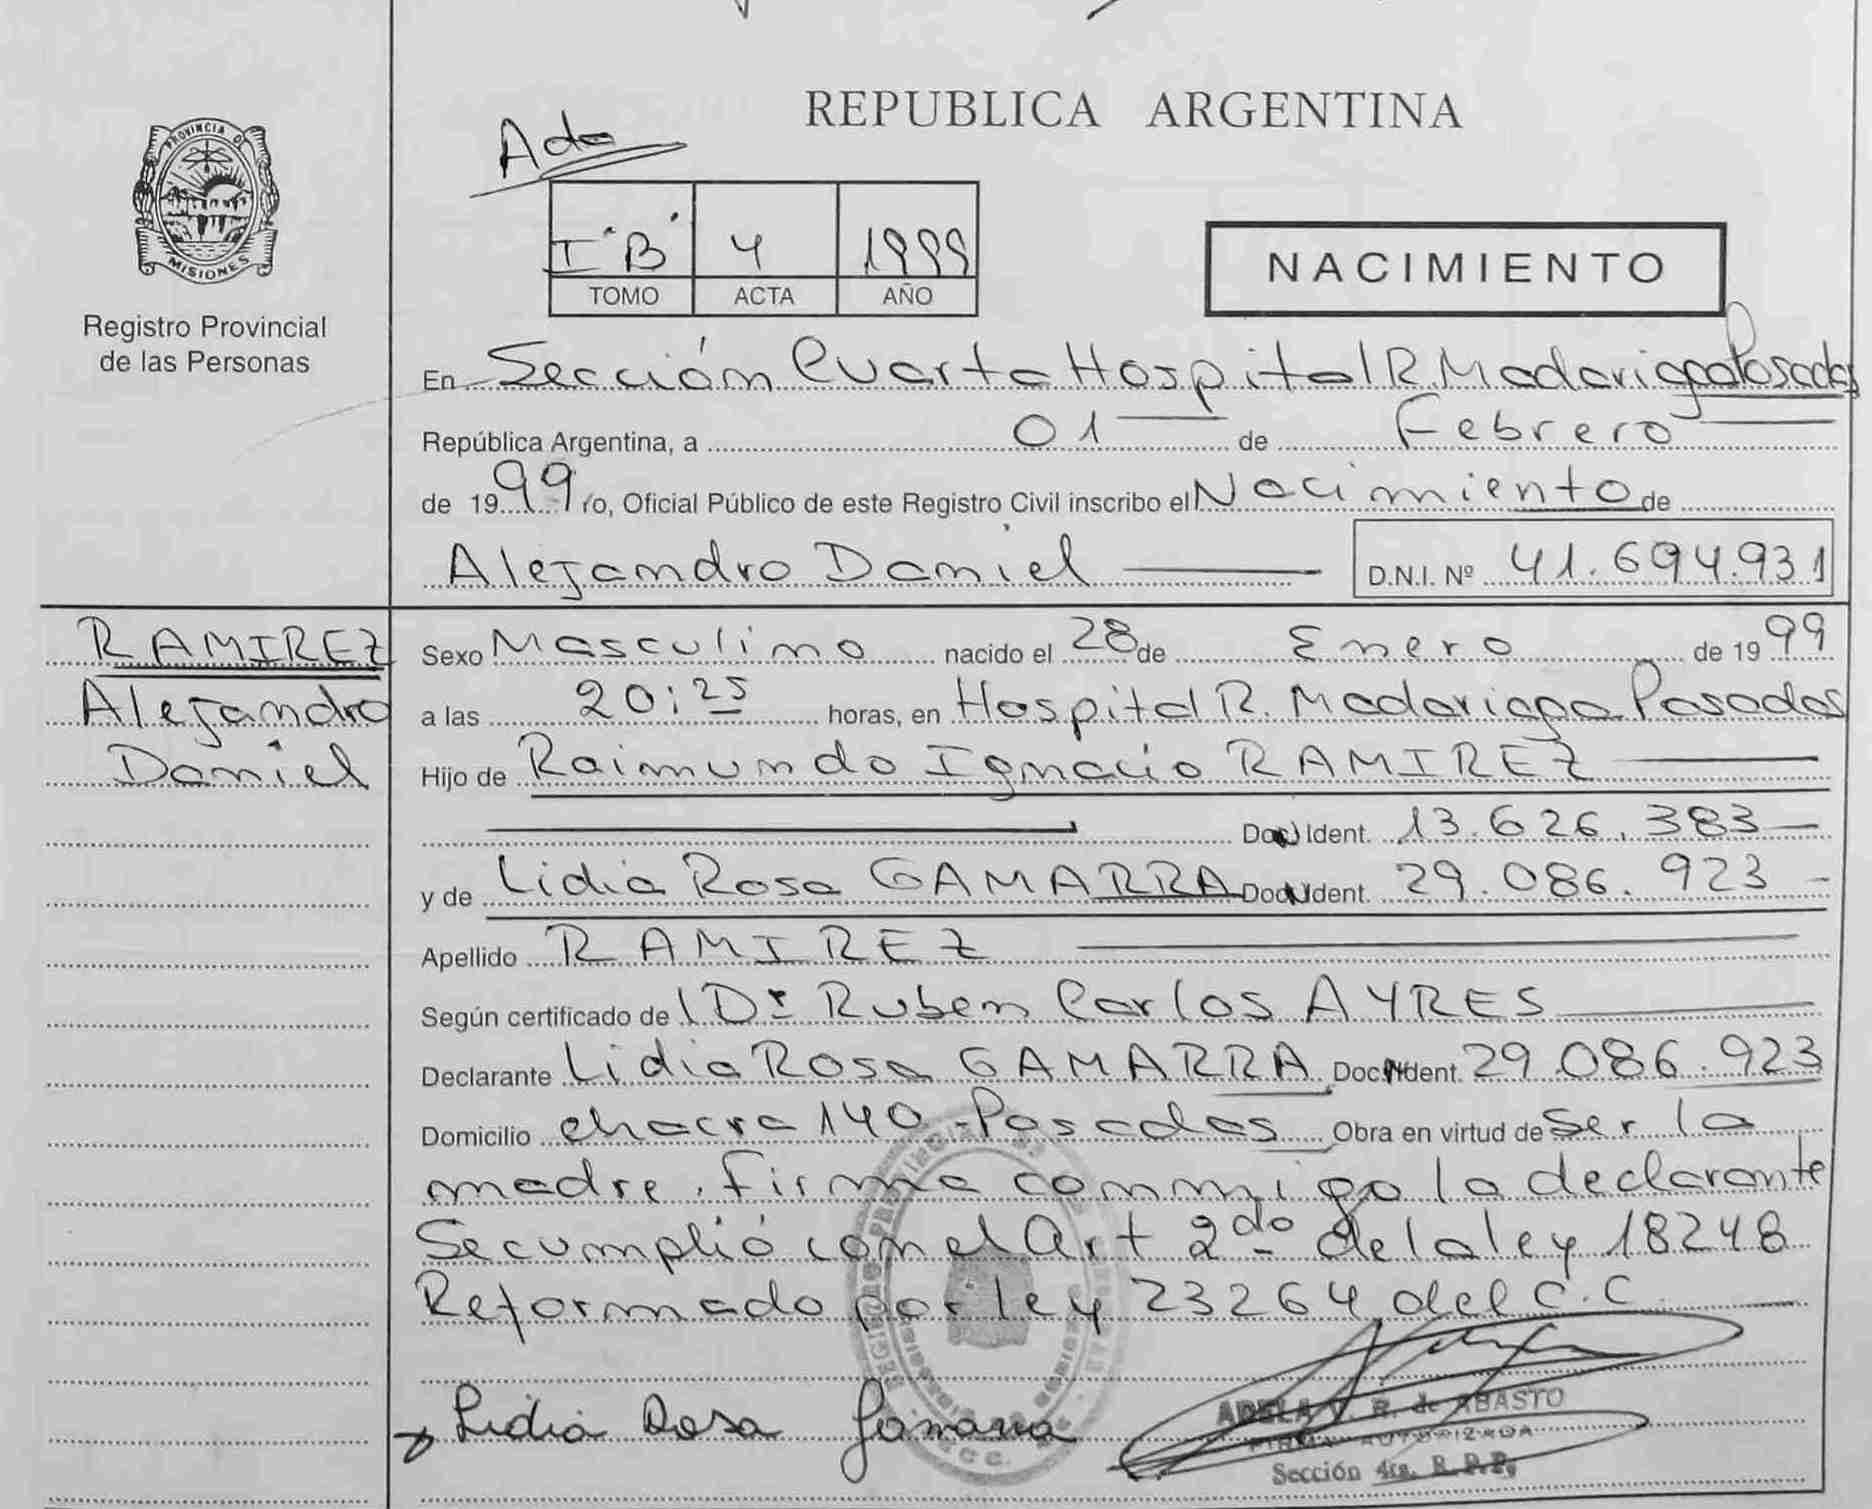 REPUBLICA ARGENTINA
PROVINCIA DE
MISIONES
Registro Provincial
de las Personas
I "B" 4 1999
TOMO ACTA AÑO
NACIMIENTO
En Sección Cuarta Hospital R. Madariaga Posadas
República Argentina, a 01 de Febrero
de 1999 Yo, Oficial Público de este Registro Civil inscribo el Nacimiento de
Alejandro Daniel D.N.I. Nº 41.694.931
RAMIREZ
Alejandro
Daniel
Sexo Masculino nacido el 28 de Enero de 1999
a las 20:25 horas, en Hospital R. Madariaga Posadas
Hijo de Raimundo Ignacio RAMIREZ
Doc. Ident. 13.626.383
y de Lidia Rosa GAMARRA Doc. Ident. 29.086.923
Apellido RAMIREZ
Según certificado de l Dr Ruben Carlos AYRES
Declarante Lidia Rosa GAMARRA Doc. Ident. 29.086.923
Domicilio chacra 140 - Posadas Obra en virtud de ser la
madre. firma conmigo la declarante
Se cumplió con el Art 2do de la ley 18248
Reformado por ley 23264 del C.C
Lidia Rosa Gamarra
ADELA V. R. de ABASTO
FIRMA AUTORIZADA
Sección 4ta. R.P.P.